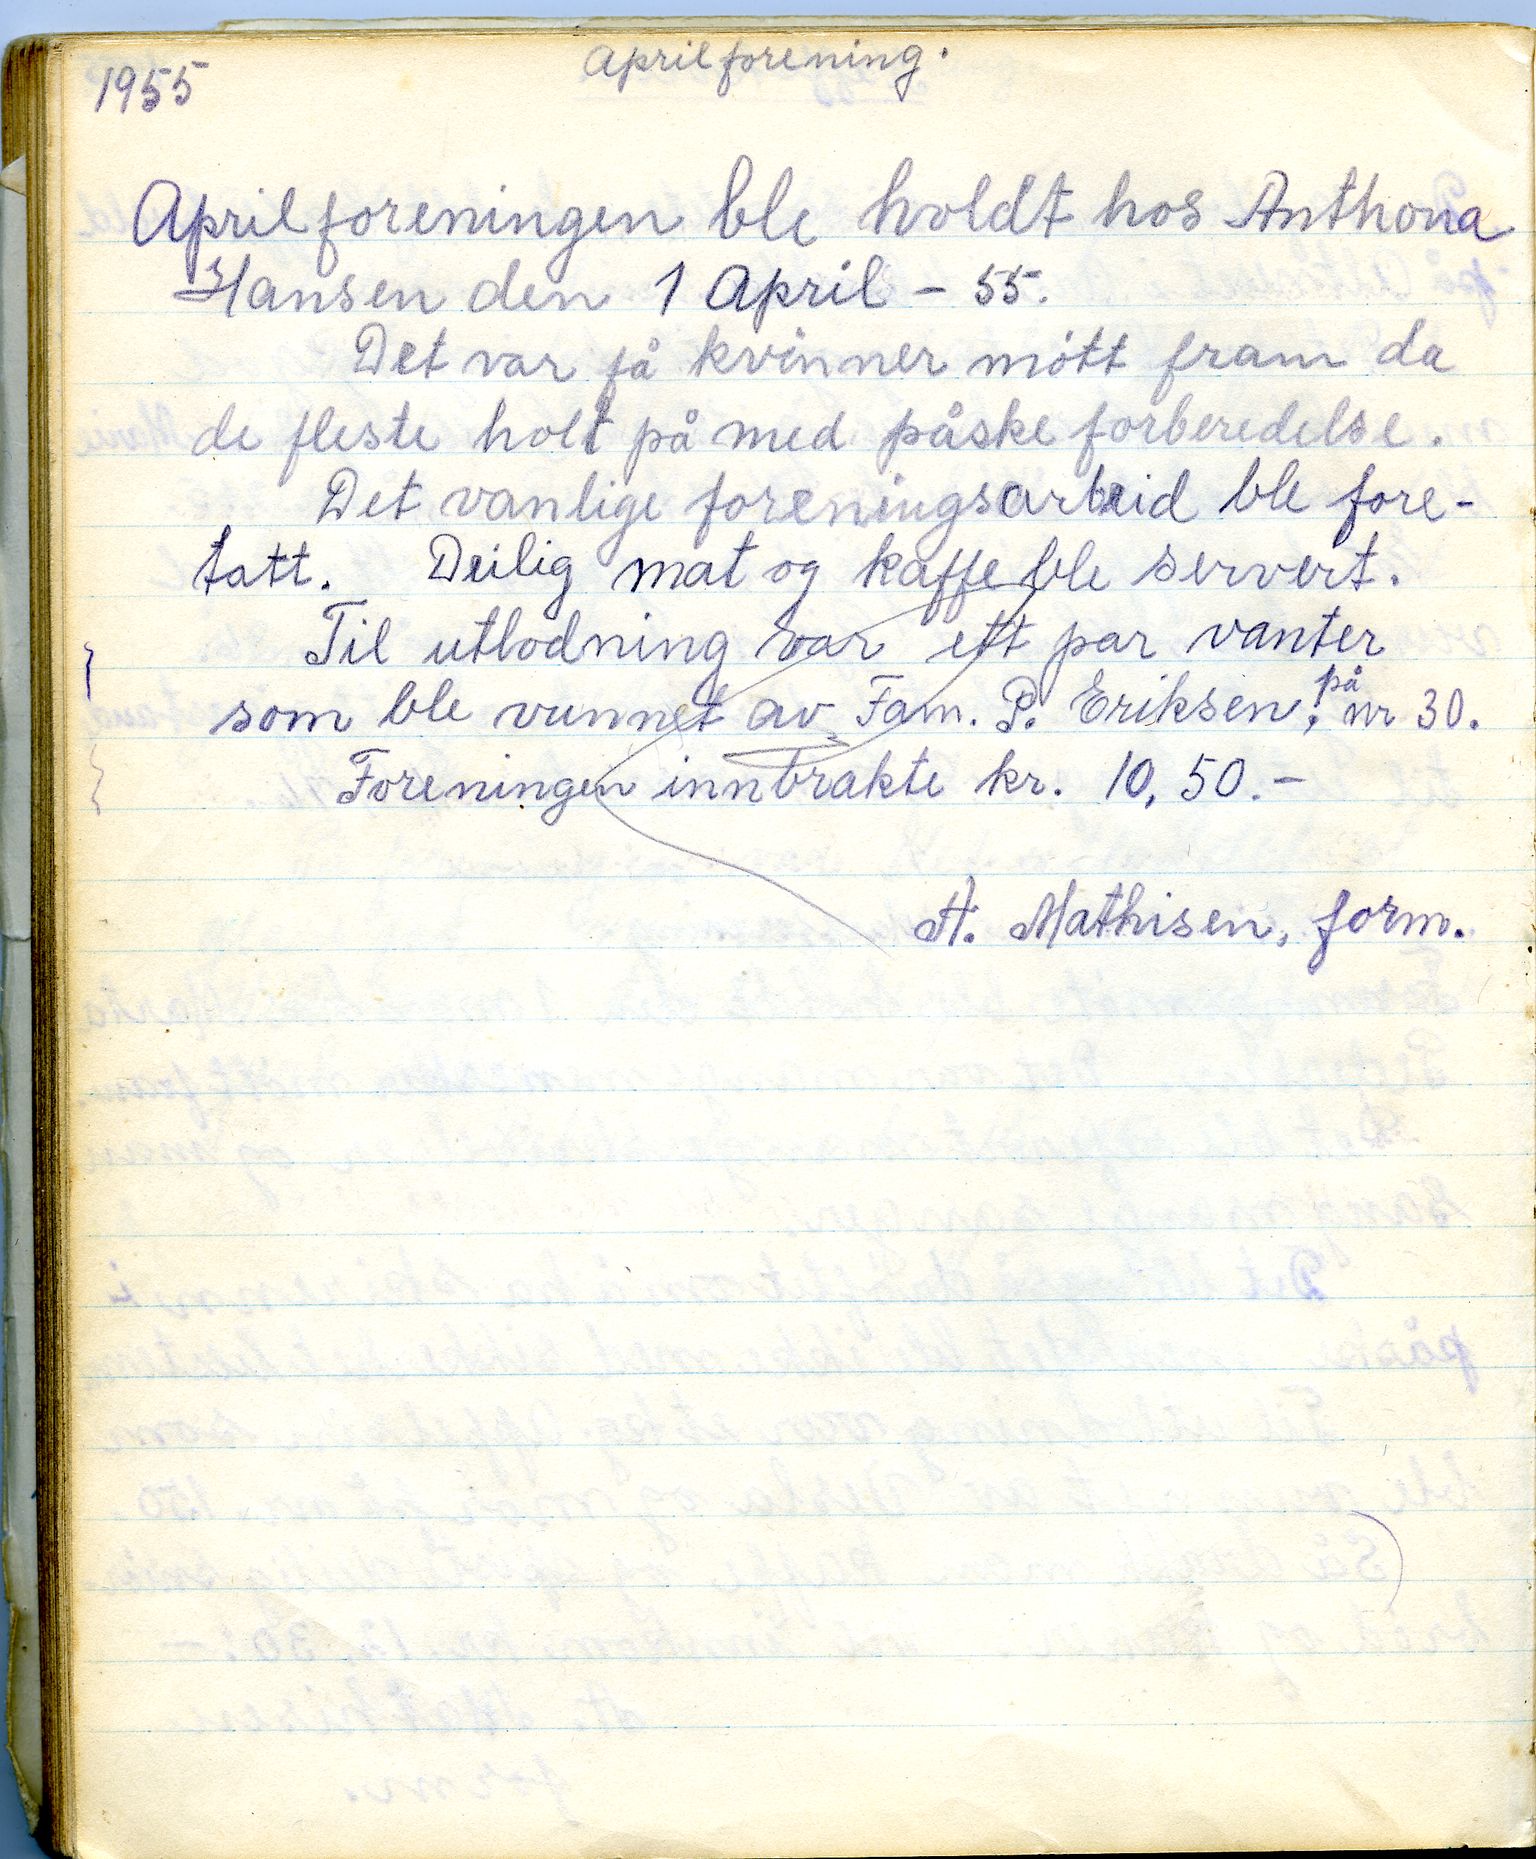 1955
Aprilforening.
Aprilforeningen ble holdt hos Anthona
Hansen den 1 April – 55.
Det var få kvinner møtt fram da
de fleste holt på med påske forberedelse.
Det vanlige foreningsarbeid ble fore-
tatt. Deilig mat og kaffe ble servert.
Til utlodning var ett par vanter
som ble vunnet av Fam. P. Eriksen, på nr 30.
Foreningen innbrakte kr. 10,50.–
A. Mathisen, form.